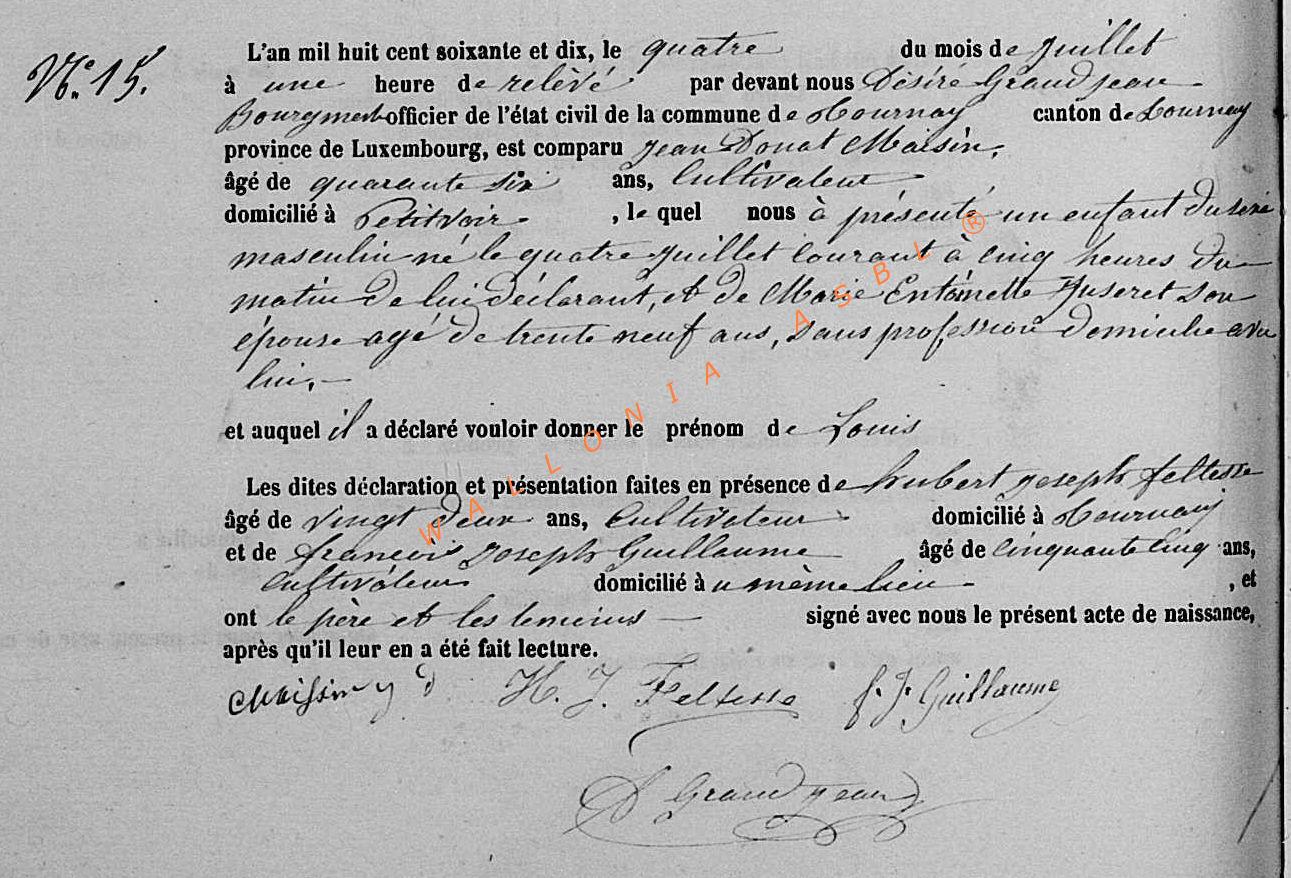 N° 15.
L'an mil huit cent soixante et dix, le quatre du mois de juillet
à une heure de relèvé par devant nous Désiré Grandjean
Bourgmest officier de l'état civil de la commune de Tournay canton de Tournay
province de Luxembourg, est comparu Jean Donat Maisin,
âgé de quarante six ans, Cultivateur
domicilié à Petitvoir , le quel nous à présenté un enfant du sexe
masculin né le quatre juillet courant à cinq heures du
matin de lui déclarant, et de Marie Entoinette Huseret son
épouse agé de trente neuf ans, sans profession domicilie avec
lui,
et auquel il a déclaré vouloir donner le prénom de Louis
Les dites déclaration et présentation faites en présence de hubert joseph feltesse
âgé de vingt deux ans, Cultivateur domicilié à Tournay
et de francois joseph Guillaume âgé de cinquante cinq ans,
Cultivateur domicilié à u même lieu , et
ont le père et les temoins signé avec nous le présent acte de naissance,
après qu'il leur en a été fait lecture.
Maissin j d H. J. Feltesse f. J. Guillaume
D Grandjean
WALLONIA ASBL ®